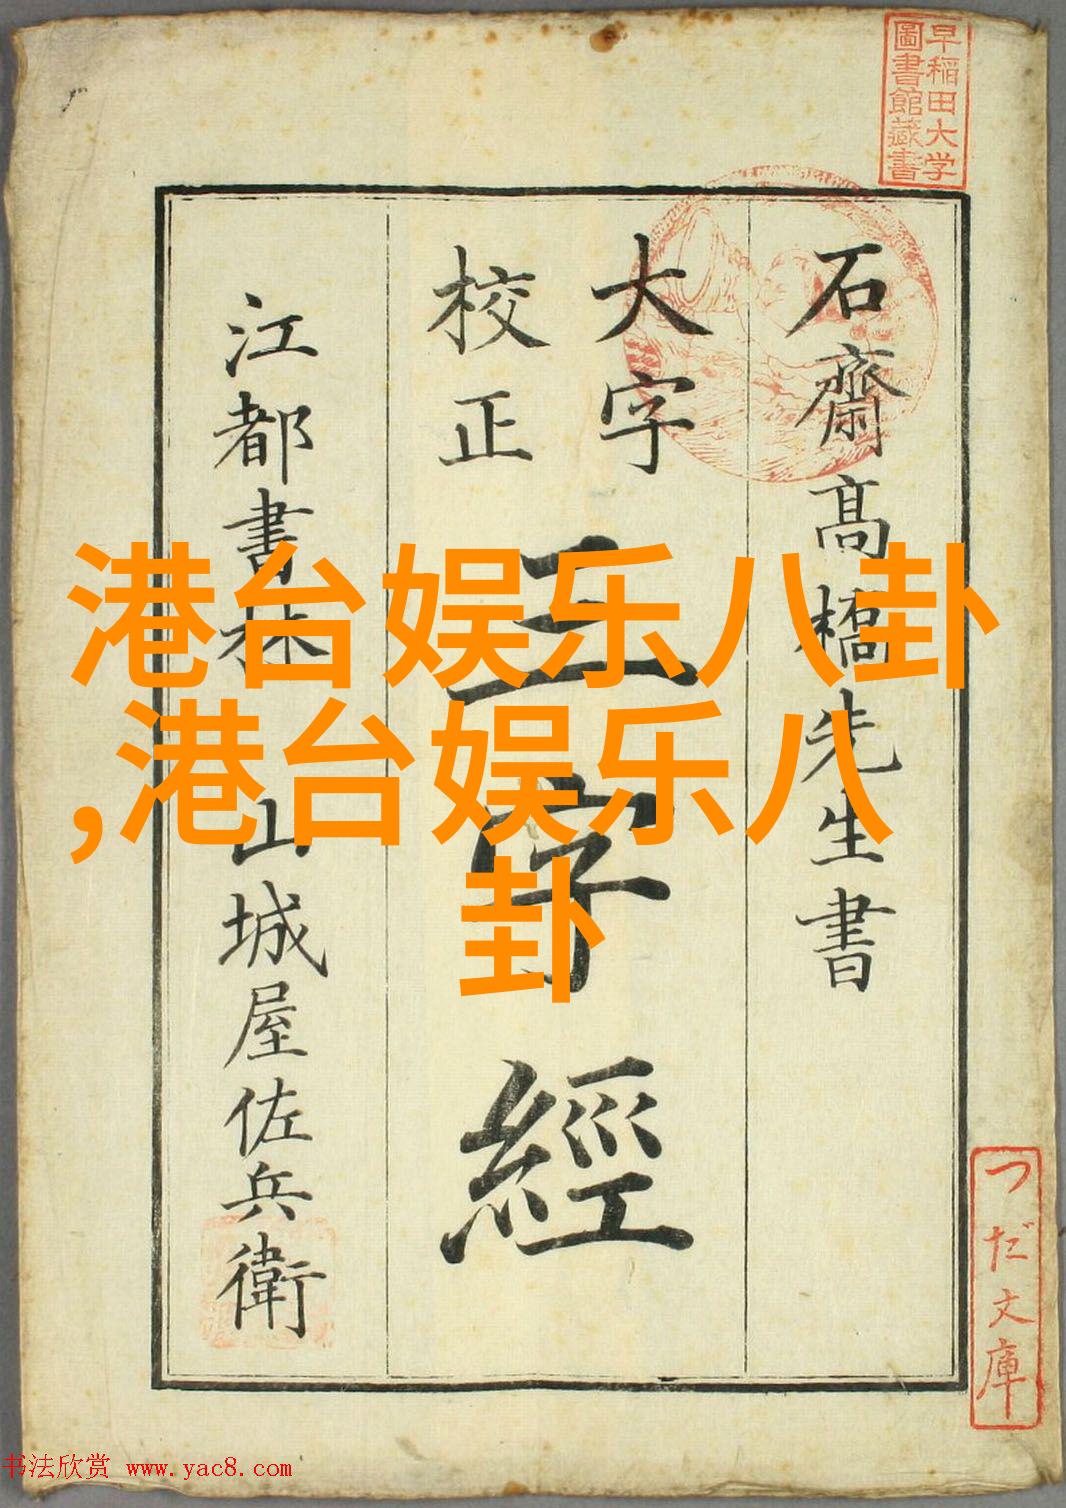 早稲田大学
圖書館藏書
石齋髙橋先生書
大字
校正
三字經
江都書林 山城屋佐兵衛
港台娱乐八卦
,港台娱乐八
卦
つだ文庫
书法欣赏 www.yac8.com